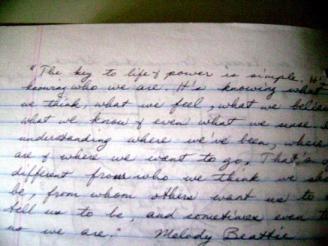 "The key to life & power is simple. It's
knowing who we are. It's knowing what
we think, what we feel, what we believe
what we know & even what we sense
understanding where we've been, where
are & where we want to go, That's
different from who we think we
be, from whom others want us to
tell us to be, and sometimes even
us we are." Melody Beattie